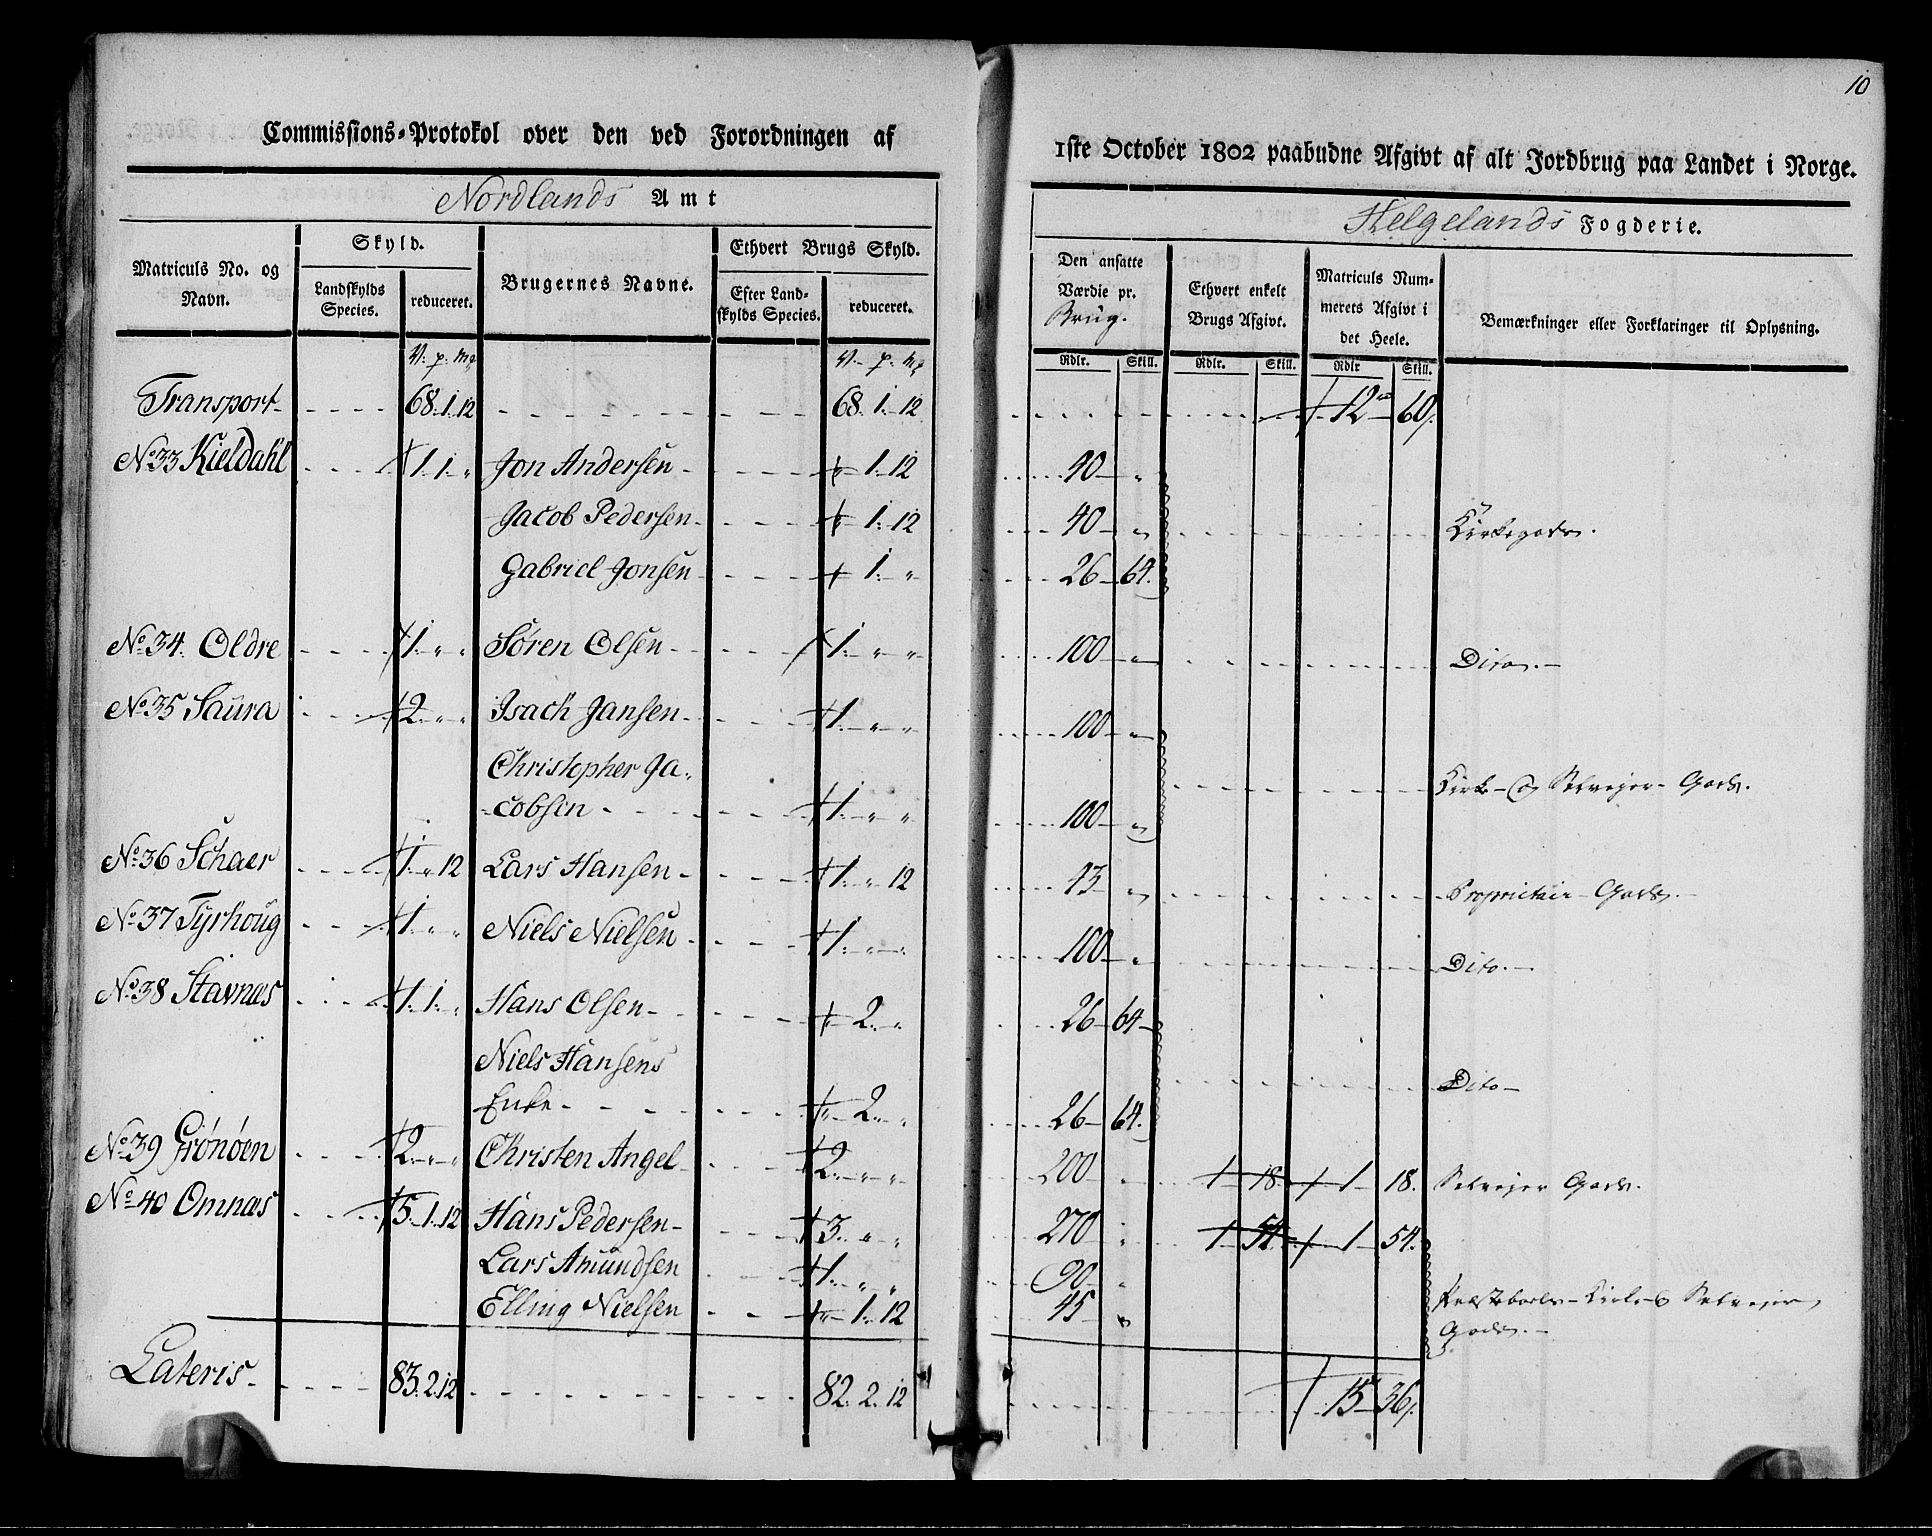 10
Commissions-Protokol over den ved Forordningen af
1ste October 1802 paabudne Afgivt af alt Jordbrug paa Landet i Norge.
Nordlands Amt
Helgelands Fogderie.
Matriculs No. og Navn.
Skyld.
Landskylds Species.
reduceret.
Brugernes Navne.
Ethvert Brugs Skyld.
Efter Landskylds Species.
reduceret.
Den ansatte Værdie pr. Brug.
Ethvert enkelt Brugs Afgivt.
Matriculs Nummerets Afgivt i det Heele.
Bemærkninger eller Forklaringer til Oplysning.
V. p. mg V. p. mg Rdlr. Skill. Rdlr. Skill. Rdlr Skill.
Transport 68. 1. 12 68. 1. 12 12 60
No 33 Kieldahl 1. 1. " Jon Andersen " 1. 12 40 "
Jacob Pedersen " 1. 12 40 " Kirkegods.
Gabriel Jonsen 1. " 26 64.
No 34. Oldre 1. " " Sören Olsen 1. " " 100 " Dito.
No 35 Saura 2. " " Isach Jansen 1. " " 100 "
Christopher Ja-
cobsen 1. " " 100 " Kirke- og Selvejer- Gods.
No 36 Schaer 1. " 12 Lars Hansen 1. " 12 43 " Proprietair Gods.
No 37 Tyrhoug 1. " " Niels Nielsen 1. " " 100 " Dito.
No 38 Stavnæs 1. 1. " Hans Olsen " 2. " 26 64
Niels Hansens
Enke " 2. " 26 64. Dito
No 39 Grönöen 2. " " Christen Angel 2. " " 200 " 1 18 1 18. Selvejer Gods.
No 40 Omnæs 5. 1. 12 Hans Pedersen 3. " " 270 " 1 54 1 54.
Lars Amundsen 1. " " 90 "
Elling Nielsen " 1. 12 45 " Præstebols- Kirke & Selvejer
Gods.
Lateris 83. 2. 12 82. 2. 12 15 36